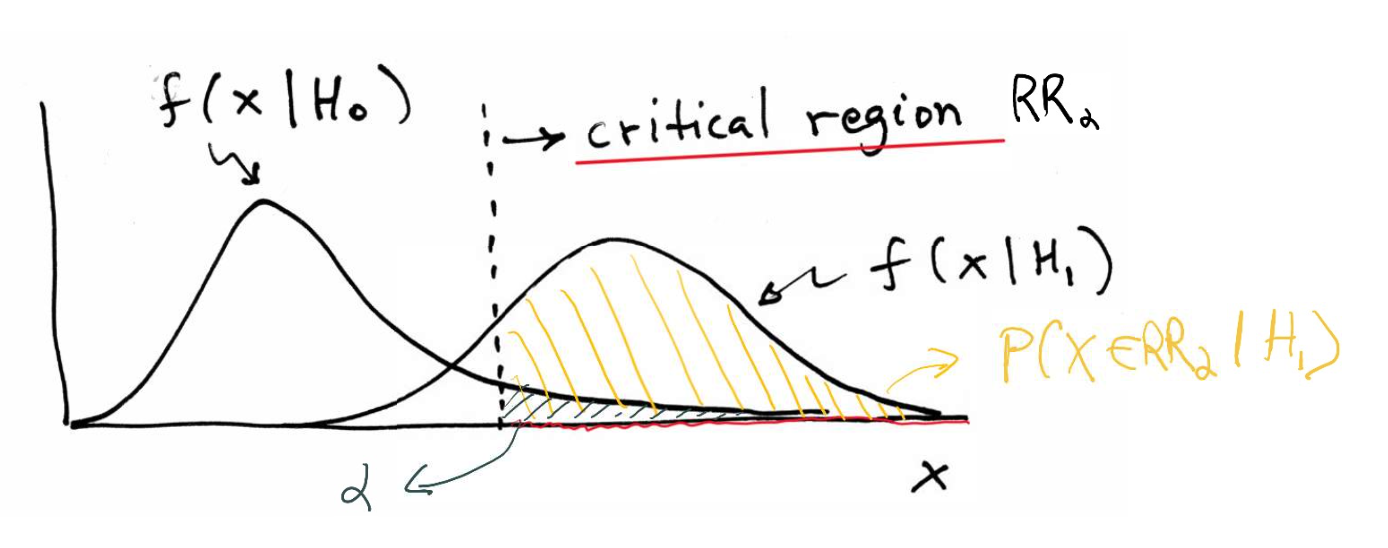 f(x|H₀)
critical region RR₂
f(x|H₁)
P(X∈RR₂|H₁)
α
x